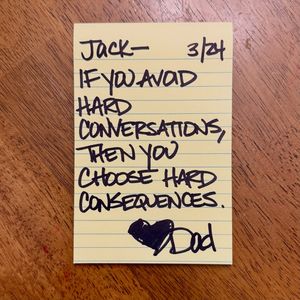 JACK— 3/24
IF YOU AVOID
HARD
CONVERSATIONS,
THEN YOU
CHOOSE HARD
CONSEQUENCES.
Dad